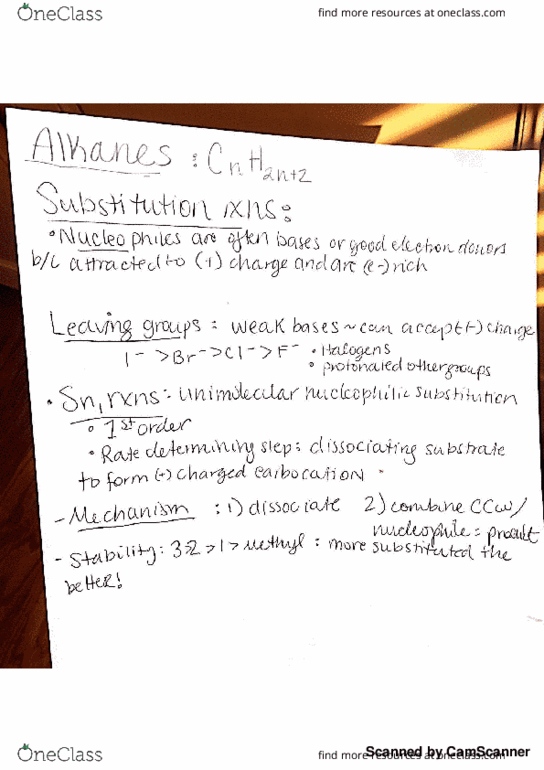 OneClass
find more resources at oneclass.com
Alkanes : CnH2n+2
Substitution rxns:
• Nucleophiles are often bases or good electron donors
b/c attracted to (+) charge and are (e-) rich
Leaving groups = weak bases ~ can accept (-) charge
I⁻ > Br⁻ > Cl⁻ > F⁻ • Halogens
• protonated other groups
• Sn1 rxns = unimolecular nucleophilic substitution
• 1st order
• Rate determining step: dissociating substrate
to form (+) charged carbocation
- Mechanism : 1) dissociate 2) combine CC w/
nucleophile = product
- Stability: 3>2>1> methyl : more substituted the
better!
OneClass
find more resources at oneclass.com
Scanned by CamScanner